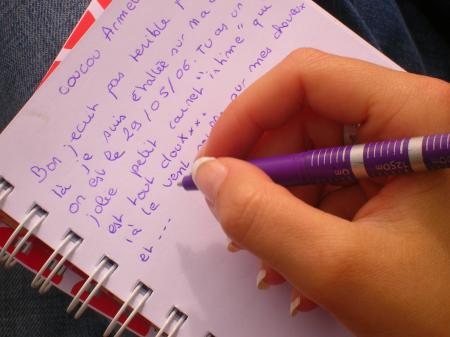 coucou Armel
Bon j'ecrit pas terrible
là je suis éttallée sur ma
on est le 29/05/06. Tu as un
jolie petit carnet "intime" que
est tout doux***
là le vent sur mes doux
et ---